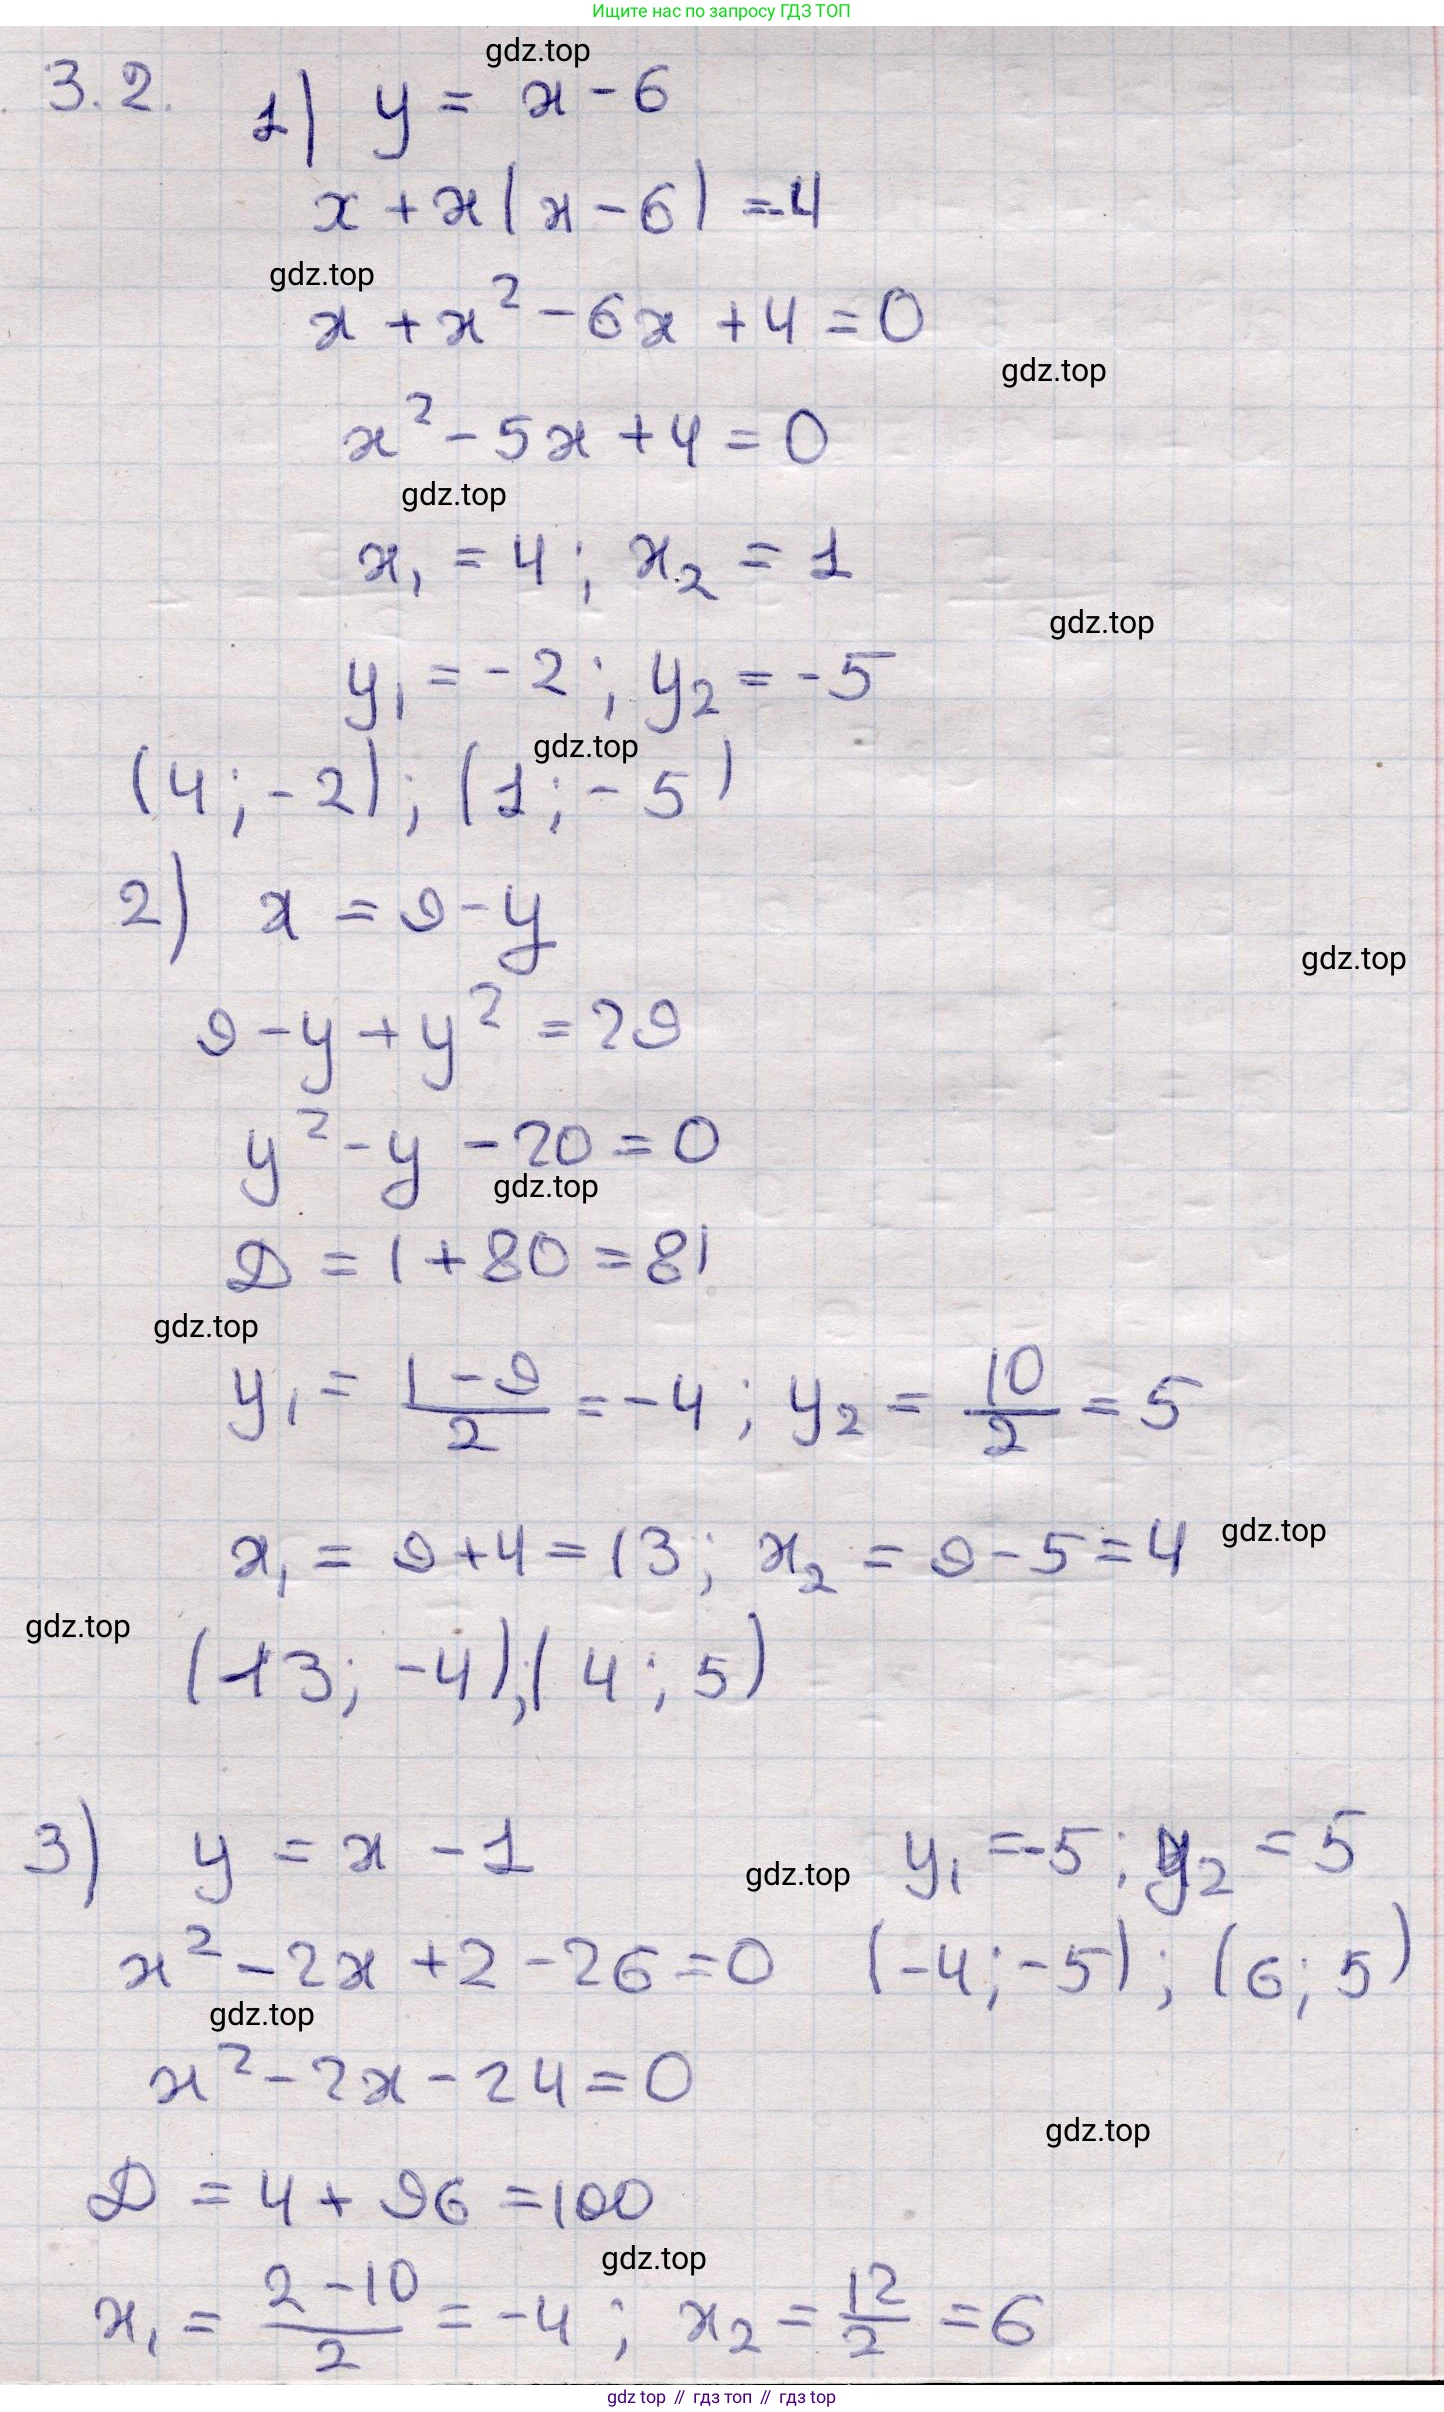 Ищите нас по запросу ГДЗ ТОП
gdz.top
3.2. 1) y = x - 6
x + x(x - 6) = -4
gdz.top
x + x² - 6x + 4 = 0
gdz.top
x² - 5x + 4 = 0
gdz.top
x₁ = 4; x₂ = 1
gdz.top
y₁ = -2; y₂ = -5
gdz.top
(4; -2); (1; -5)
2) x = 9 - y
gdz.top
9 - y + y² = 29
y² - y - 20 = 0
gdz.top
D = 1 + 80 = 81
gdz.top
y₁ = (1 - 9)/2 = -4; y₂ = 10/2 = 5
x₁ = 9 + 4 = 13; x₂ = 9 - 5 = 4
gdz.top
gdz.top
(13; -4); (4; 5)
3) y = x - 1
gdz.top
x² - 2x + 2 - 26 = 0
gdz.top
x² - 2x - 24 = 0
D = 4 + 96 = 100
gdz.top
x₁ = (2 - 10)/2 = -4; x₂ = 12/2 = 6
y₁ = -5; y₂ = 5
(-4; -5); (6; 5)
gdz.top
gdz top // гдз топ // гдз top